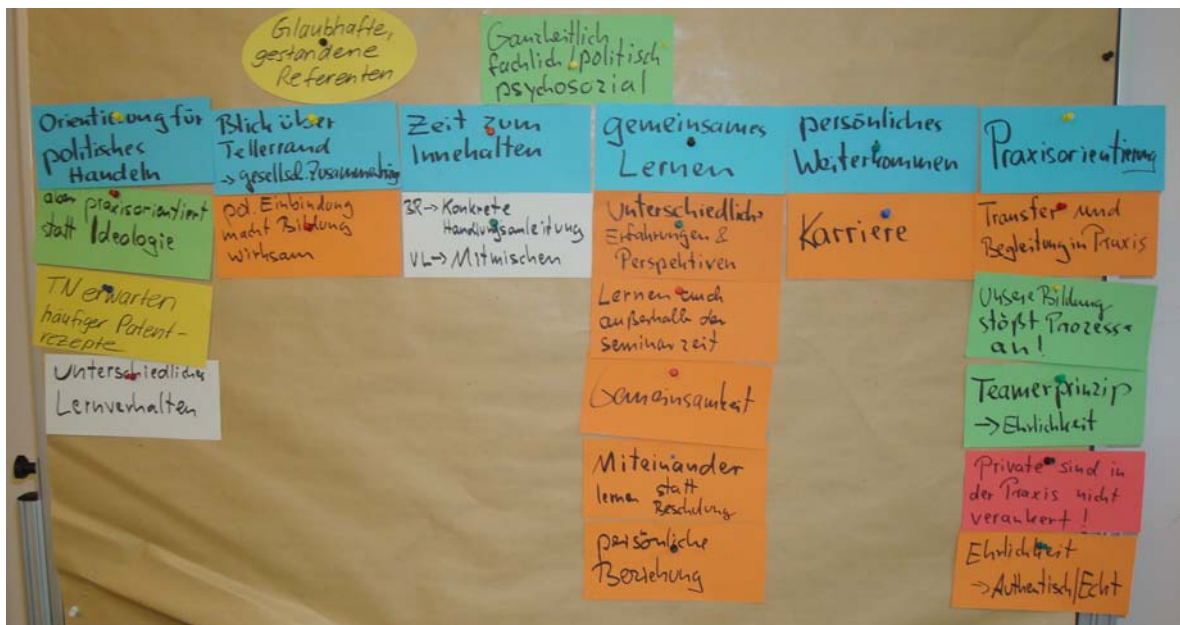 Glaubhafte,
gestandene
Referenten
Ganzheitlich
fachlich/politisch
psychosozial
Orientierung für
politisches
Handeln
aber praxisorientiert
statt Ideologie
TN erwarten
häufiger Patent-
rezepte
Unterschiedliches
Lernverhalten
Blick über
Tellerrand
→ gesellsch. Zusammenhänge
pol. Einbindung
macht Bildung
wirksam
Zeit zum
Innehalten
BR → Konkrete
Handlungsanleitung
VL → Mitmischen
gemeinsames
Lernen
Unterschiedliche
Erfahrungen &
Perspektiven
Lernen auch
außerhalb der
seminarzeit
Gemeinsamkeit
Miteinander
lernen statt
Beschulung
persönliche
Beziehung
persönliches
Weiterkommen
Karriere
Praxisorientierung
Transfer und
Begleitung in Praxis
Unsere Bildung
stößt Prozesse
an!
Teamerprinzip
→ Ehrlichkeit
Private sind in
der Praxis nicht
verankert!
Ehrlichkeit
→ Authentisch/Echt